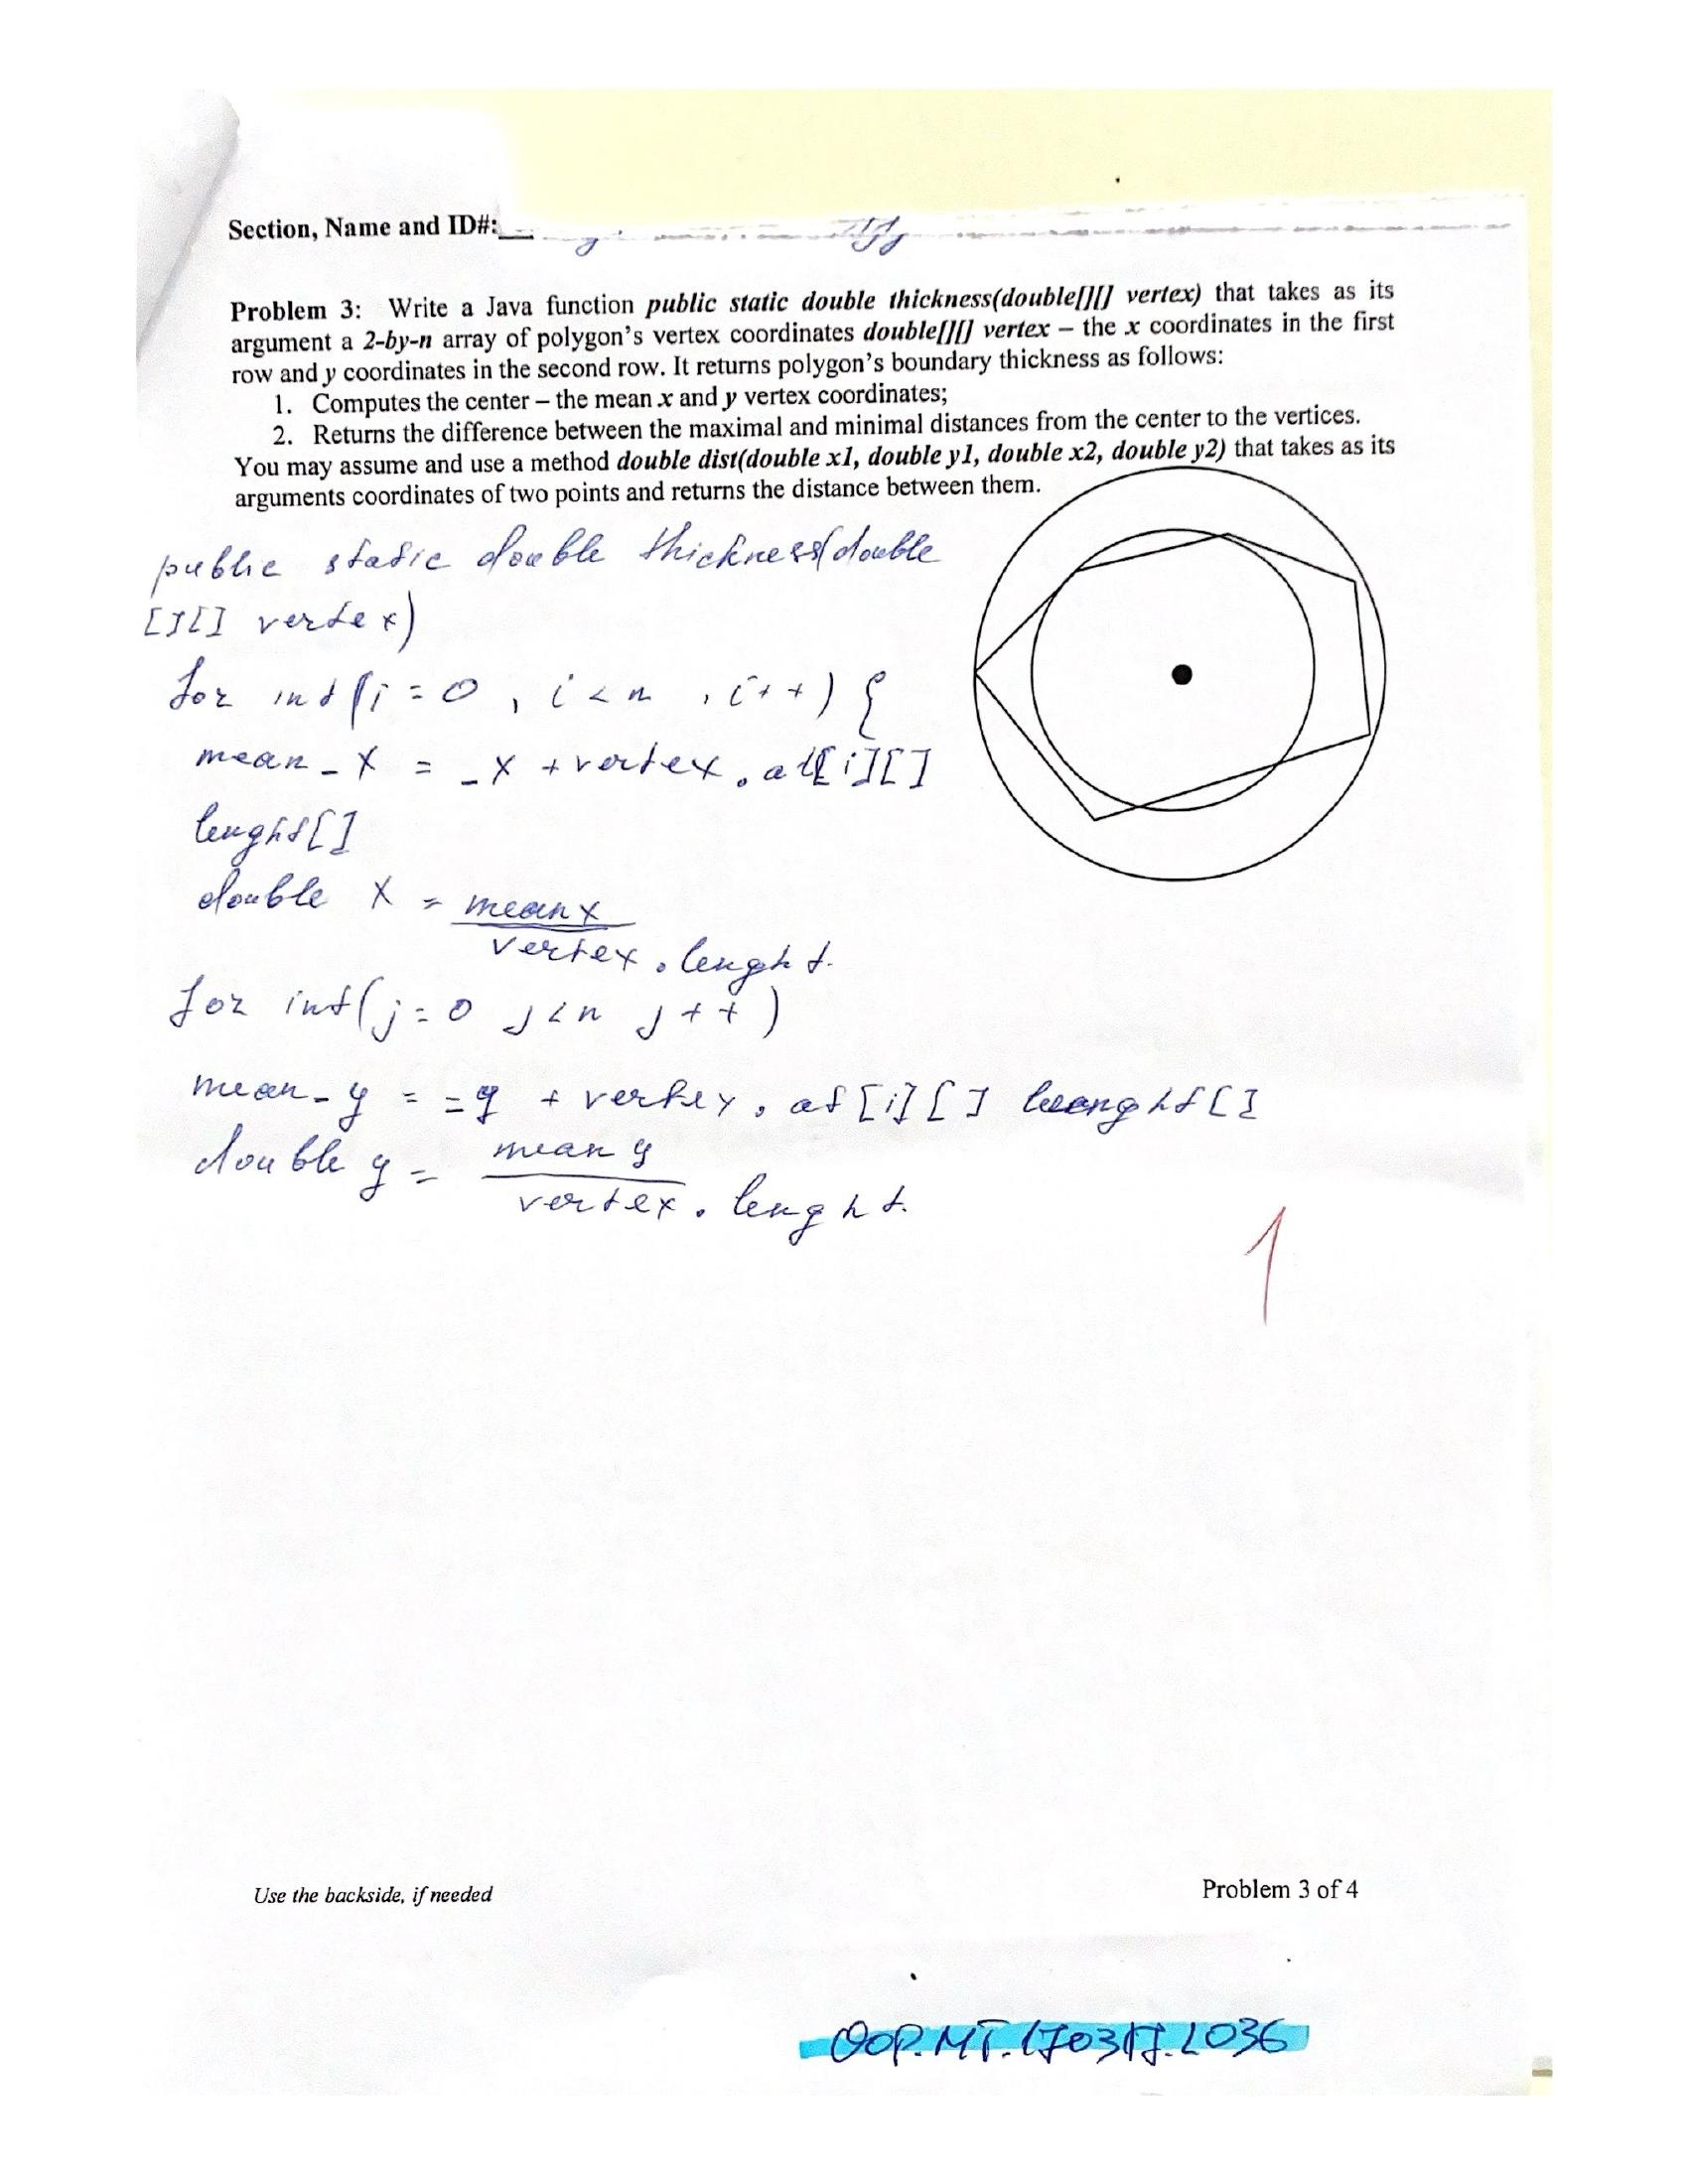 Section, Name and ID#:
Problem 3: Write a Java function public static double thickness(double[][] vertex) that takes as its
argument a 2-by-n array of polygon's vertex coordinates double[][] vertex – the x coordinates in the first
row and y coordinates in the second row. It returns polygon's boundary thickness as follows:
1. Computes the center – the mean x and y vertex coordinates;
2. Returns the difference between the maximal and minimal distances from the center to the vertices.
You may assume and use a method double dist(double x1, double y1, double x2, double y2) that takes as its
arguments coordinates of two points and returns the distance between them.
public static double thickness(double
[][] vertex)
for int(i=0, i<n, i++) {
mean_x = _x + vertex.at[i][]
lenght[]
double x = mean x
vertex.lenght.
for int(j=0 j<n j++)
mean_y = =y + vertex.at[i][] lenght[]
double y = mean y
vertex.lenght.
1
Use the backside, if needed
Problem 3 of 4
OOP.MT.170317.L036